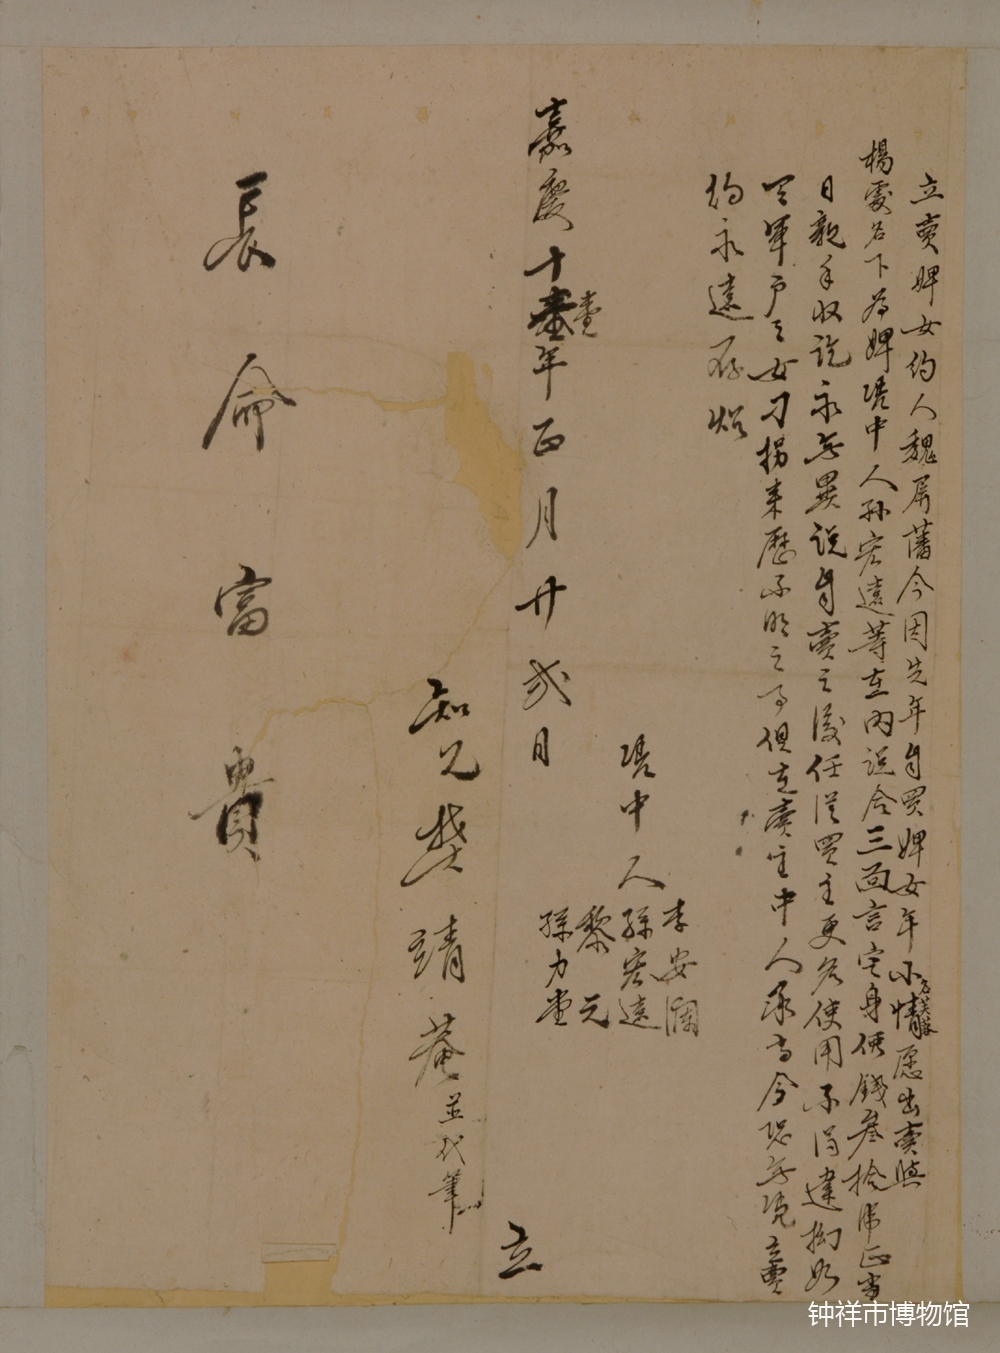 立賣婢女約人魏屏藩今因先年自買婢女年小名芙蓉情愿出賣與
楊處名下爲婢凴中人孙宏遠等在內説合三面言定身價錢叁拾串正當
日親手收訖永無異説自賣之後任從買主更名使用不得違拗如
是軍户之女刁拐來歷不明之事俱在賣主中人承當今恐無凴立賣
約永遠存炤
凴中人
李安瀾
孫宏遠
黎元
孫力堂
嘉慶十壹年正月廿弍日
壹
立
知見樊靖菴並代筆
長命富貴
钟祥市博物馆